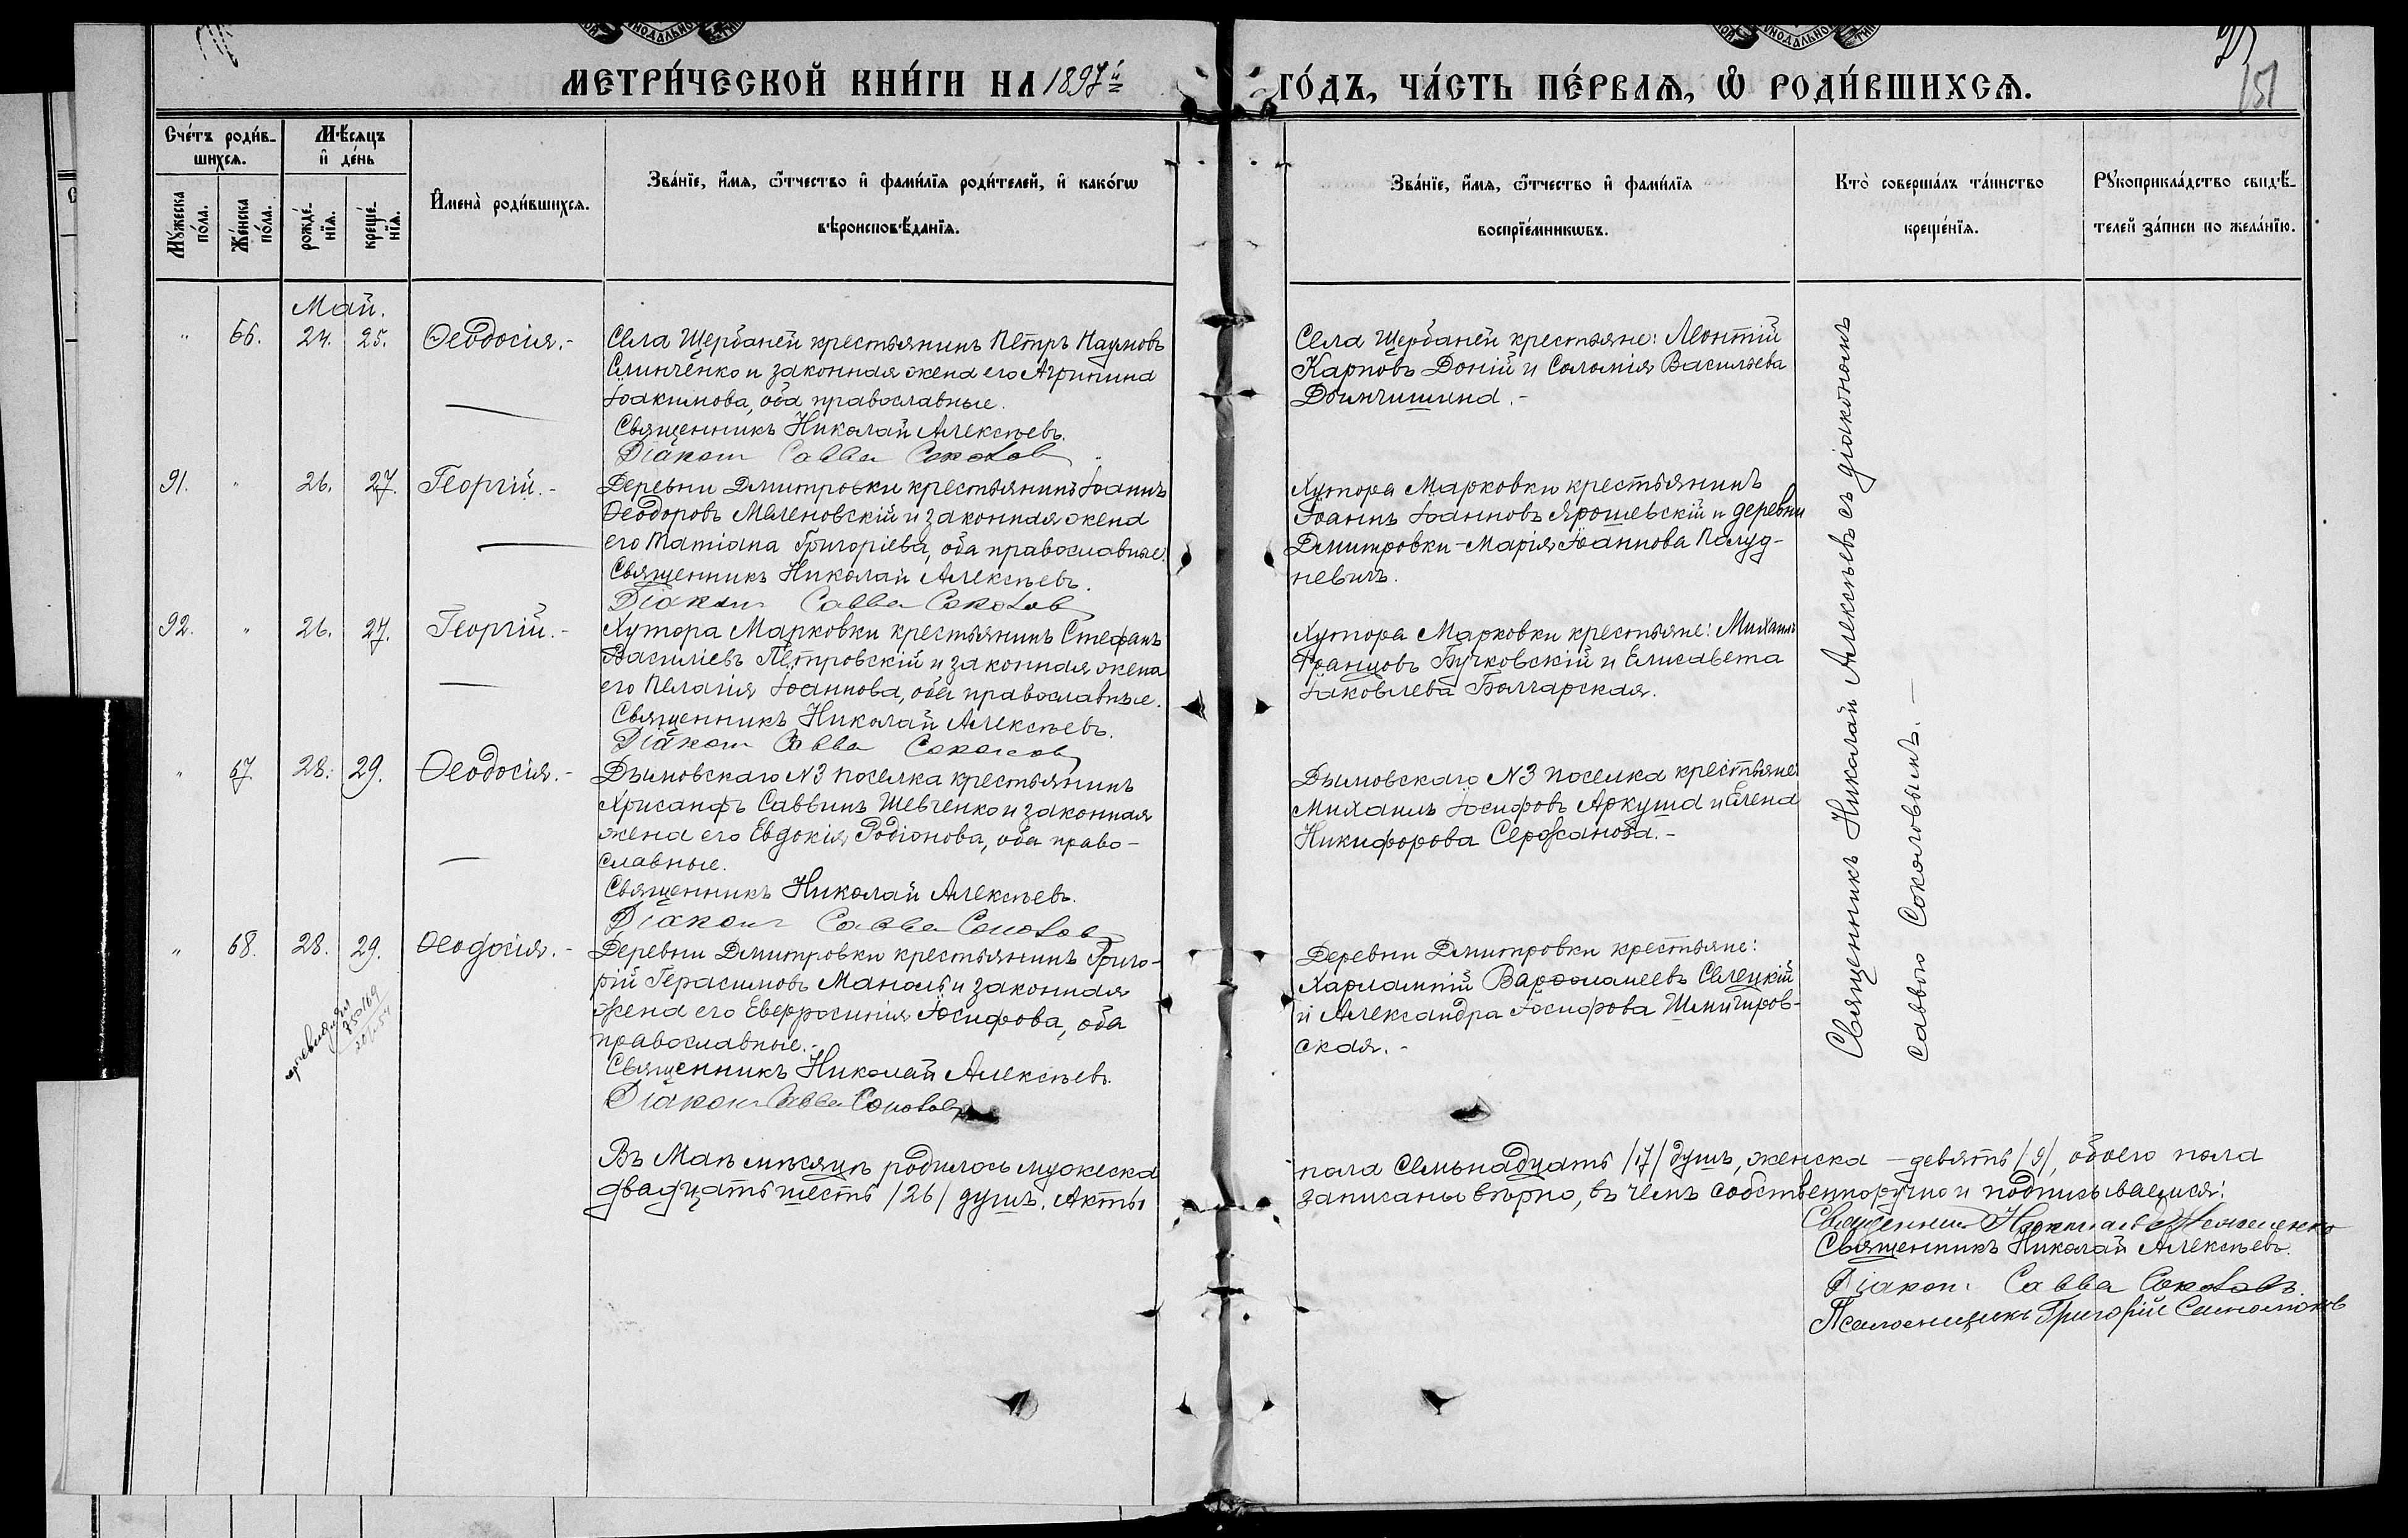 МЕТРИ́ЧЕСКОЙ КНИ́ГИ НА 1897й ГО́ДЪ, ЧА́СТЬ ПЕ́РВАѦ, Ѽ РОДИ́ВШИХСѦ.
151
Сче́тъ роди́в-
шихсѧ.
Мѣ́сѧцъ
и҆ де́нь
Мꙋ́жеска
по́ла.
Же́нска
по́ла.
рожде́-
нїѧ.
креще́-
нїѧ.
И҆мена̀ роди́вшихсѧ.
Зва́нїе, и҆́мѧ, ѻ҆́тчество и҆ фами́лїѧ роди́телей, и҆ како́гѡ
вѣроисповѣ́данїѧ.
Зва́нїе, и҆́мѧ, ѻ҆́тчество и҆ фами́лїѧ
воспрїе́мникѡвъ.
Кто̀ соверша́лъ та́инство
креще́нїѧ.
Рꙋкоприкла́дство свидѣ́-
телей за́писи по жела́нїю.
Май.
" 66. 24. 25. Ѳеодосія.-
Села Щербаней крестьянинъ Петръ Наумовъ
Слинченко и законная жена его Агрипина
Іоакимова, оба православные.
Священникъ Николай Алексѣевъ.
Діаконъ Савва Соколовъ
Села Щербаней крестьяне: Леонтій
Карповъ Доній и Соломія Васильева
91. " 26. 27. Георгій.-
Деревни Дмитровки крестьянинъ Іоаннъ
Ѳеодоровъ Меленовскій и законная жена
его Татіана Григоріева, оба православные.
Священникъ Николай Алексѣевъ.
Діаконъ Савва Соколовъ
Хутора Марковки крестьянинъ
Іоаннъ Іоанновъ Ярошевскій и деревни
Дмитровки-Марія Іоаннова Полуд-
невичъ.
92. " 26. 27. Георгій.-
Хутора Марковки крестьянинъ Стефанъ
Василіевъ Петровскій и законная жена
его Пелагія Іоаннова, оба православные.
Священникъ Николай Алексѣевъ.
Діаконъ Савва Соколовъ
Хутора Марковки крестьяне: Михаилъ
Францовъ Бучковскій и Елисавета
Іаковлева Болгарская.
" 67. 28. 29. Ѳеодосія.-
Дымовскаго N3 поселка крестьянинъ
Хрисанфъ Саввинъ Шевченко и законная
жена его Евдокія Родіонова, оба право-
славные.
Священникъ Николай Алексѣевъ.
Діаконъ Савва Соколовъ
Дымовскаго N3 поселка крестьяне:
Михаилъ Іосифовъ Аркуша и Елена
Никифорова Сержанова.-
" 68. 28. 29. Ѳеодосія.-
Деревни Дмитровки крестьянинъ Григо-
рій Герасимовъ Маноль и законная
жена его Евфросинія Іосифова, оба
православные.-
Священникъ Николай Алексѣевъ.
Діаконъ Савва Соколовъ
Деревни Дмитровки крестьяне:
Харлампій Варфоломеевъ Селецкій
и Александра Іосифова Шмигиров-
ская.-
Священникъ Николай Алексѣевъ съ діакономъ
Саввою Соколовымъ.-
Въ Маѣ мѣсяцѣ родилось мужеска пола семьнадцать /17/ душъ, женска - девять /9/, обоего пола
двадцать шесть /26/ душъ. Акты записаны вѣрно, въ чемъ собственноручно и подписываемся:
Священникъ
Священникъ Николай Алексѣевъ.
Діаконъ Савва Соколовъ.
Псаломщикъ Григорій